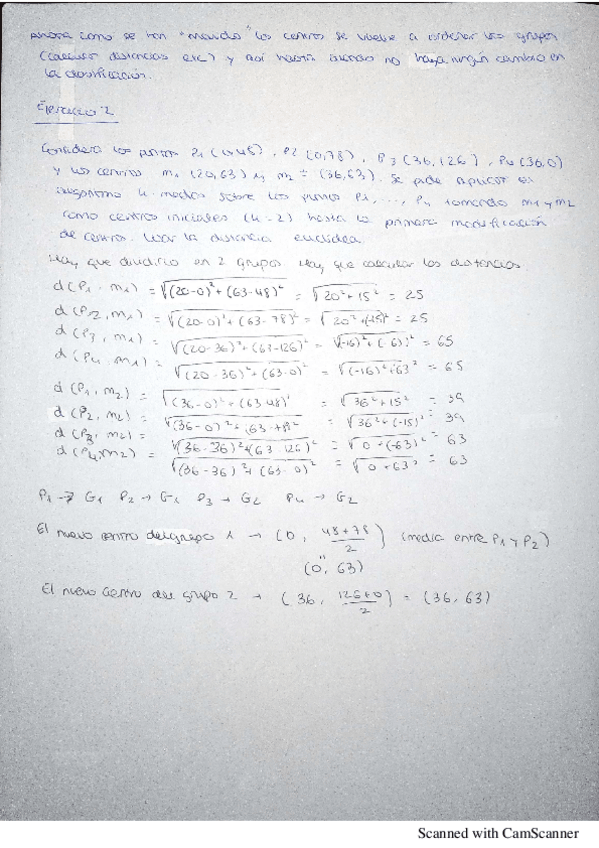 Ahora como se han "movido" los centros se vuelve a ordenar los grupos
(calcular distancias etc) y así hasta cuando no haya ningún cambio en
la clasificación.
Ejercicio 2
Considera los puntos P1 (0,48), P2 (0,78), P3 (36,126), P4 (36,0)
y los centros m1 (20,63) y m2 = (36,63). Se pide aplicar el
algoritmo k-medias sobre los puntos P1, ..., P4 tomando m1 y m2
como centros iniciales (k=2) hasta la primera modificación
de centros. Usar la distancia euclídea.
Hay que dividirlo en 2 grupos Hay que calcular las distancias
d(P1, m1) = √(20-0)² + (63-48)² = √20² + 15² = 25
d(P2, m1) = √(20-0)² + (63-78)² = √20² + (-15)² = 25
d(P3, m1) = √(20-36)² + (63-126)² = √(-16)² + (-6)² = 65
d(P4, m1) = √(20-36)² + (63-0)² = √(-16)² + 63² = 65
d(P1, m2) = √(36-0)² + (63-48)² = √36² + 15² = 39
d(P2, m2) = √(36-0)² + (63-78)² = √36² + (-15)² = 39
d(P3, m2) = √(36-36)² + (63-126)² = √0 + (-63)² = 63
d(P4, m2) = √(36-36)² + (63-0)² = √0 + 63² = 63
P1 → G1 P2 → G1 P3 → G2 P4 → G2
El nuevo centro del grupo 1 → (0, 48+78/2) (media entre P1 y P2)
"
(0, 63)
El nuevo centro del grupo 2 → (36, 126+0/2) = (36, 63)
Scanned with CamScanner